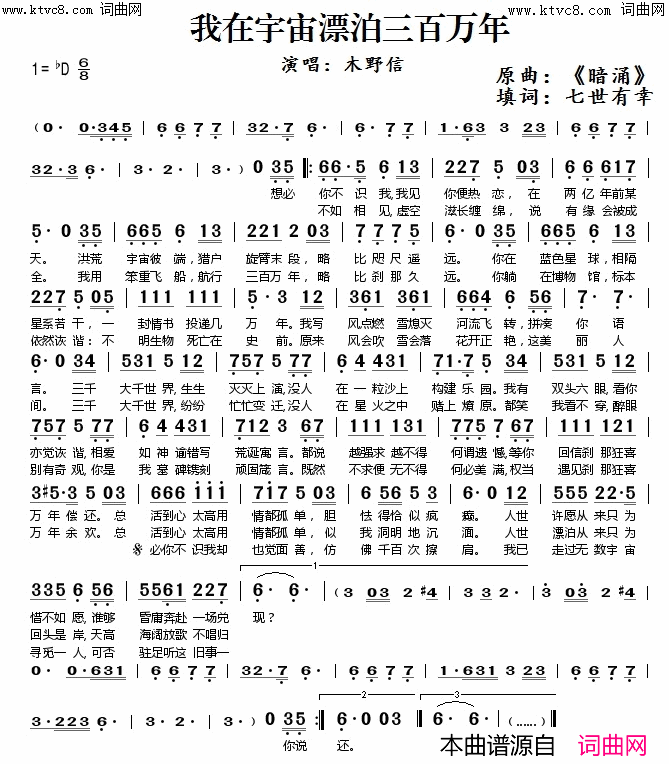 www.ktvc8.com 词曲网
www.ktvc8.com 词曲网
我在宇宙漂泊三百万年
演唱：木野信
1=♭D 6/8
原曲：《暗涌》
填词：七世有幸
(0· 0·345 | 6 6 7 7 | 32·7 | 6· 6· | 1·63 3 23 | 6 6 7 7 |
32·3 6· | 3·2· | 3·2·) 0 35 |: 66·5 6 13 | 227 5 03 | 6 6 617 |
想必 你不 识我,我见 你便热 恋, 在 两 亿 年前某
不如 相见,虚空 滋长缠 绵, 说 有 缘 会被成
5·0 35 | 665 6 13 | 221 2 03 | 5 7 7 5 | 6·0 35 | 665 6 13 |
天。 洪荒 宇宙彼 端,猎户 旋臂末 段, 略 比 咫 尺 遥 远。 你在 蓝色星 球,相隔
全。 我用 笨重飞 船,航行 三百万 年, 略 比 刹 那 久 远。 你躺 在博物 馆,标本
227 5 05 | 111 111 | 5·3 02 | 361 361 | 664 6 56 | 7· 7· |
星系若 干, 一 封情书 投递几 万 年。我写 风点燃 雪熄灭 河流飞 转,拼凑 你 语
依然诙 谐: 不 明生物 死亡在 史 前。原来 风会吹 雪会落 花开正 艳,这美 丽 人
6·0 34 | 531 5 12 | 757 5 77 | 6 4 431 | 71·7 5 34 | 531 5 12 |
言。 三千 大千世 界,生生 灭灭上 演,没人 在 一 粒沙上 构建 乐 园。我有 双头六 眼,看你
间。 三千 大千世 界,纷纷 忙忙变 迁,没人 在 星 火之中 赌上 燎 原。都笑 我看不 穿,醉眼
757 5 77 | 6 4 431 | 712 3 67 | 111 131 | 777 5 67 | 111 123 |
亦觉诙 谐,相爱 如 神 谕错写 荒诞寓 言。都说 越强求 越不得 何谓遗 憾,等你 回信刹 那狂喜
别有奇 观,你是 我 墓 碑镌刻 顽固箴 言。既然 不求便 无不得 何必美 满,权当 遇见刹 那狂喜
3♯5·3 5 03 | 666 111 | 717 5 03 | 6 56 5 1 | 6·0 12 | 555 22·5 |
万 年 偿 还。 总 活到心 太高用 情都孤 单, 胆 怯 得恰 似 疯 癫。 人世 许愿从 来只 为
万 年 余 欢。 总 活到心 太高用 情都孤 单, 似 我 洞明 地 沉 湎。 人世 漂泊从 来只 为
𝄋 必你不 识我却 也觉面 善, 仿 佛 千百 次 擦 肩。 我已 走过无 数宇 宙
335 6 56 | 5561 227 | 6· 6· | (3 03 2 ♯4 | 3 03 2 ♯4 |
惜不如 愿,谁够 昏庸奔赴 一场兑 现？
回头是 岸,天高 海阔放歌 不唱归
寻觅一 人,可否 驻足听这 旧事一
0· 0·0631 | 6 6 7 7 | 32·7 | 6· 6· | 0·0631 3 23 | 6 6 7 7 |
3·3223 6· | 3·2· | 3·2·) 0 35 :| 6·0 03 05 :| 6· 6· | (……) |
你说 还。
本曲谱源自 词曲网